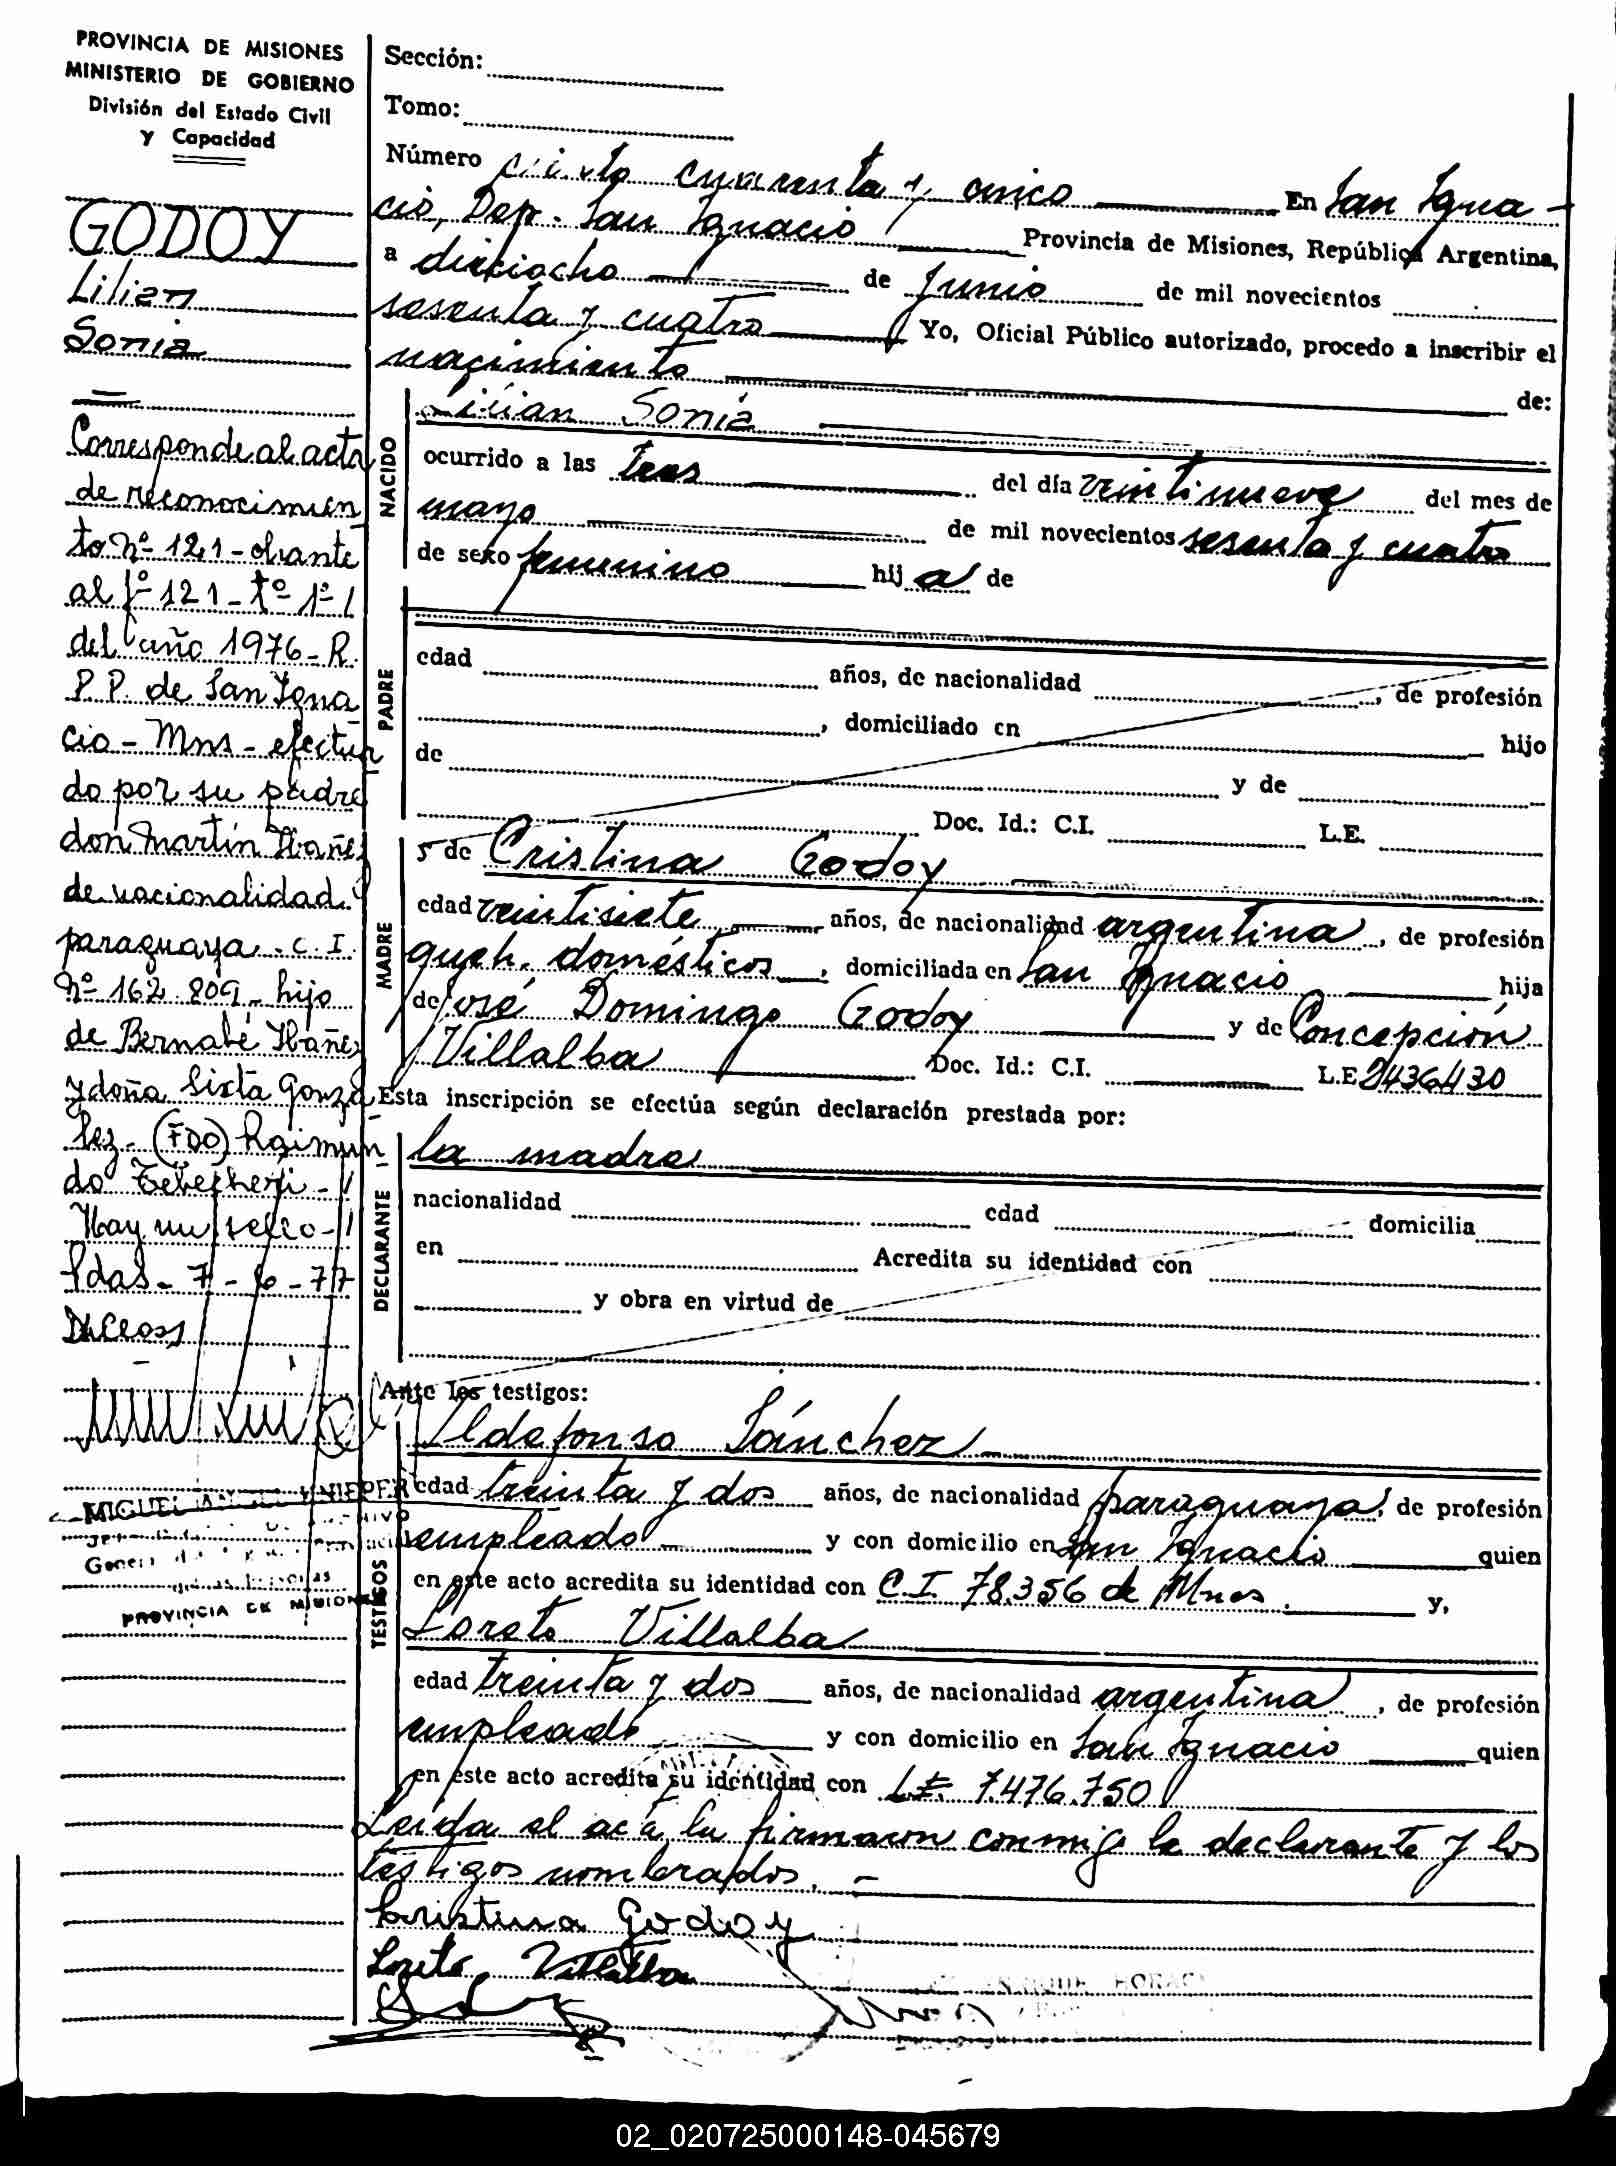 PROVINCIA DE MISIONES
MINISTERIO DE GOBIERNO
División del Estado Civil
y Capacidad
GODOY
Lilian
Sonia
Corresponde al acta
de reconocimien
to Nº 121 - obrante
al fº 121 - tº 1º
del año 1976 - R.
P. P. de San Igna
cio - Mns - efectua
do por su padre
don Martín Ibañez
de nacionalidad
paraguaya - C. I.
Nº 162.809 - hijo
de Bernabé Ibañez
y doña Sixta Gonza
lez - (FDO) Raimun
do
Hay un sello -
Pdas - 7 - 6 - 77
MIGUEL
PROVINCIA DE MISIONES
Sección:
Tomo:
Número ciento cuarenta y cinco En San Igna-
cio, Dep. San Ignacio Provincia de Misiones, República Argentina,
a dieciocho de Junio de mil novecientos
sesenta y cuatro Yo, Oficial Público autorizado, procedo a inscribir el
nacimiento de:
NACIDO
Lilian Sonia
ocurrido a las tres del día veintinueve del mes de
mayo de mil novecientos sesenta y cuatro
de sexo femenino hij a de
PADRE
edad años, de nacionalidad , de profesión
, domiciliado en hijo
de y de
Doc. Id.: C.I. L.E.
MADRE
y de Cristina Godoy
edad veintisiete años, de nacionalidad argentina, de profesión
queh. domésticos, domiciliada en San Ignacio hija
de José Domingo Godoy y de Concepción
Villalba Doc. Id.: C.I. L.E. 2436430
Esta inscripción se efectúa según declaración prestada por:
DECLARANTE
la madre
nacionalidad edad domicilia
en Acredita su identidad con
y obra en virtud de
Ante los testigos:
TESTIGOS
Ildefonso Sánchez
edad treinta y dos años, de nacionalidad paraguaya, de profesión
empleado y con domicilio en San Ignacio quien
en este acto acredita su identidad con C.I. 78.356 de Mnes. y,
Loreto Villalba
edad treinta y dos años, de nacionalidad argentina, de profesión
empleado y con domicilio en San Ignacio quien
en este acto acredita su identidad con L.E. 7.476.750
Leída el acta, la firmaron conmigo la declarante y los
testigos nombrados. -
Cristina Godoy
Loreto Villalba
02_020725000148-045679